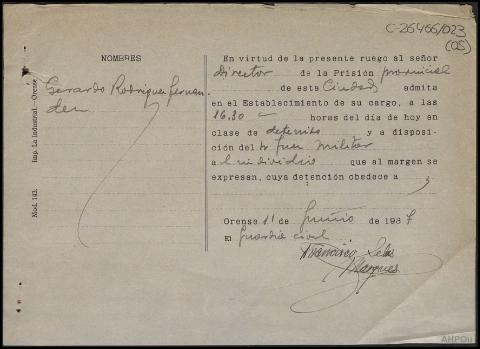 C-26466/023
(OS)
NOMBRES
Gerardo Rodriguez Fernan
dez
Imp. La Industrial.—Orense
Mod. 143.
En virtud de la presente ruego al señor
Director de la Prisión provincial
de esta Ciudad admita
en el Establecimiento de su cargo, a las
16,30 horas del día de hoy en
clase de detenido y a disposi-
ción del Sr Juez militar
a l individuo que al margen se
expresan, cuya detención obedece a
Orense 11 de Junio de 1937
El Guardia civil
Francisco
Marques
AHPOu